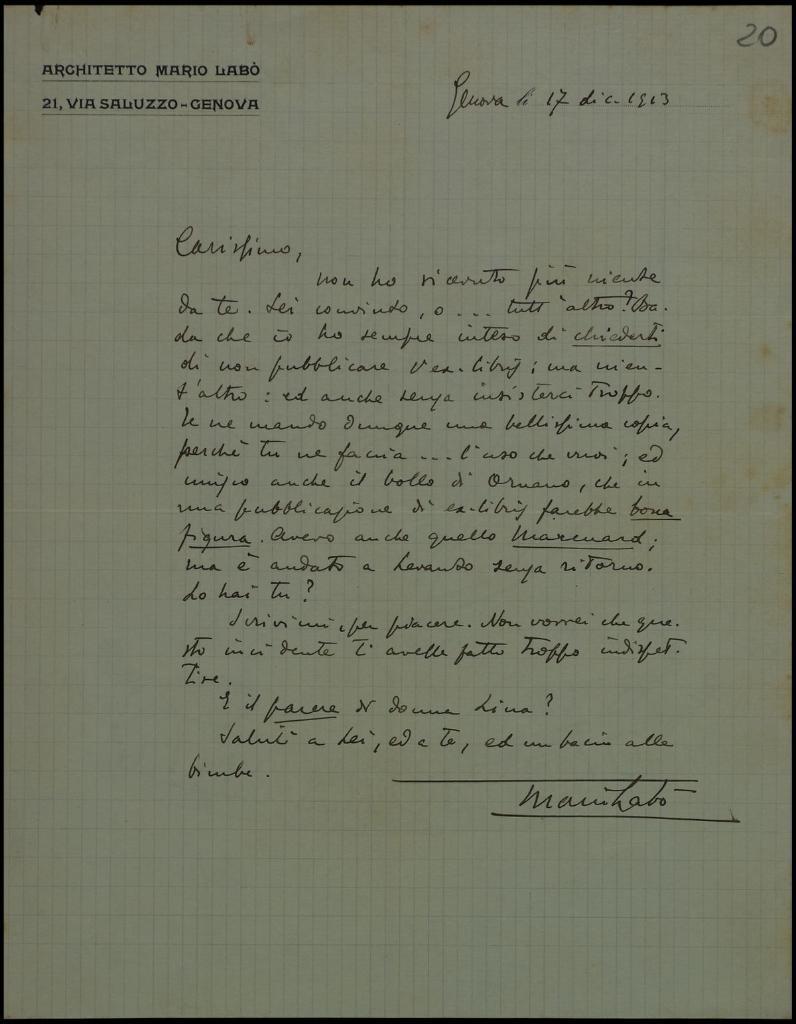 20
ARCHITETTO MARIO LABÒ
21, VIA SALUZZO - GENOVA
Genova li 17 dic. 1913
Carissimo,
non ho ricevuto più niente
da te. Sei convinto, o ... tutt'altro? Ba-
da che io ho sempre inteso di chiederti
di non pubblicare l'ex-libris; ma nien-
t'altro: ed anche senza insisterci troppo.
Te ne mando dunque una bellissima copia,
perché tu ne faccia ... l'uso che vuoi; ed
unisco anche il bollo di Ornano, che in
una pubblicazione di ex-libris farebbe bona
figura. Avevo anche quello
ma è andato a Levanto senza ritorno.
Lo hai tu?
Scrivimi, per piacere. Non vorrei che que-
sto incidente ti avesse fatto troppo indispet-
tire.
E il parere di donna Lina?
Saluti a Lei, ed a te, ed un bacio alle
bimbe.
Mario Labò